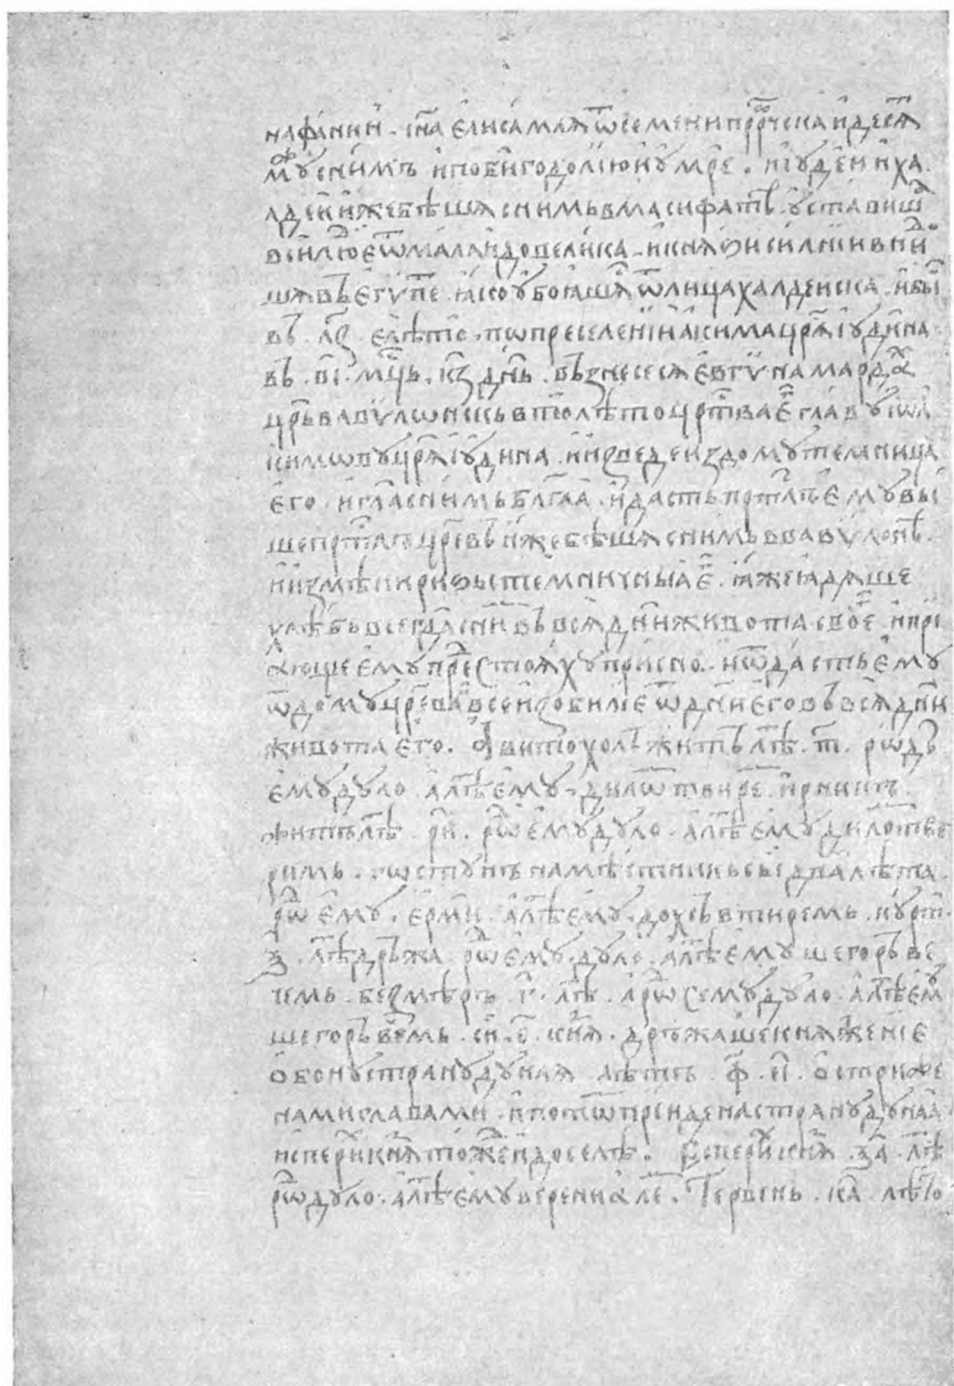 нафанїин . сн҃а елисамля ѿ семени прⷪ҇рческа и десѧⷮ
мꙋⷤ с нимъ и поби годолїю и ꙋмре . и їꙋдеи и ха
лдеи иже бѣшѧ с нимь в масифатѣ . ꙋставишѧ
вси людїе ѿ мала и до велика . и кнѧзи силнїи вниⷣⷪ
шѧ въ егѵпеⷮ ꙗко ꙋбоꙗшѧⷭ ѿ лица халдеиска . и быⷭ
въ л҃з е лѣто . по преселенїи ꙗкима цр҃ѧ їꙋдина
въ . в҃і . мцⷭ҇ь . к҃з дн҃ь . възнесесѧ евгїꙋнамардаⷯ
цр҃ь вавѵлоньскъ в то лѣто црⷭ҇тва еⷢ главꙋ їѡа
кимовꙋ цр҃ѧ їꙋдина . и изведе из домꙋ темница
его . и гл҃а с нимь бл҃гаа . и дасть прⷭ҇тлъ емꙋ вы
ше прⷭ҇тлъ цр҃евъ иже бѣшѧ с нимъ в вавѵлонѣ .
и измѣни ризы темничныꙗ еⷢ . ꙗже ꙗдѧше
хлѣбъ всегда с нимъ въ всѧ дн҃и живота своеⷢ . и прї
ающе емꙋ прⷣестоꙗхꙋ присно . и ѿдасть емꙋ
ѿ домꙋ цр҃ева всеизобилїе ѿ дн҃и его въ всѧ дн҃и
живота его . Авитохолъ житъ лѣⷮ . т҃ . рѡдъ
емꙋ дꙋло . а лѣⷮ емꙋ . диломъ твиреⷨ . ирникъ .
житъ лѣⷮ . р҃и . рѡⷣ емꙋ дꙋло . а лѣⷮ емꙋ диломъ тве
римь . гостꙋнъ намѣстникь сыи два лѣта .
рѡⷣ емꙋ . ерми . а лѣⷮ емꙋ . дохсъ втиремь . кꙋрт .
ѯ . лѣⷮ дръжа . рѡⷣ емꙋ . дꙋло . а лѣⷮ емꙋ шегоръ ве
чемь . безмѣръ г҃ . лѣⷮ . а рѡⷣ семꙋ дꙋло . а лѣⷮ емꙋ
шегоръ вемь . си . е҃ . кнѧⷥ . дръжаше кнѧженїе
обонꙋ странꙋ дꙋнаꙗ . лѣтъ . ф҃ . е҃і . остриже
нами главами . и потоⷨ прїиде на странꙋ дꙋнаꙗ
исперих кнѧⷥ тожде и доселѣ . Есперих кнѧⷥ . ѯ҃а . лѣⷮ
рѡⷣ дꙋло . а лѣⷮ емꙋ верени алеⷨ . Тервень . к҃а . лѣто